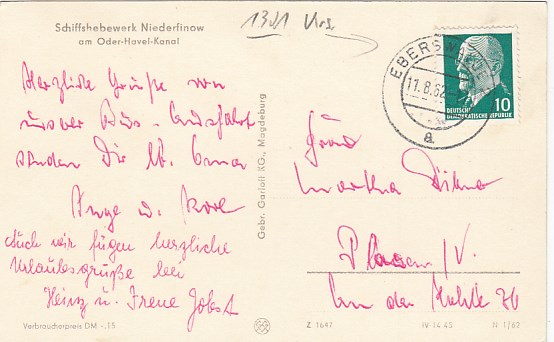 Schiffshebewerk Niederfinow
am Oder-Havel-Kanal
1381
Herzliche Grüße von
unser Bus-Ausfahrt
senden Dir lb. Oma
Auch wir fügen herzliche
Urlaubsgrüße bei
Heinz u. Irene Jobst
Verbraucherpreis DM -,15
Gebr. Garloff KG., Magdeburg
EBERSWALDE
11.8.62
a
10
DEUTSCHE
DEMOKRATISCHE REPUBLIK
Frau
Martha
Plauen/V.
An der
Z 1647
IV-14-45
N 1/62